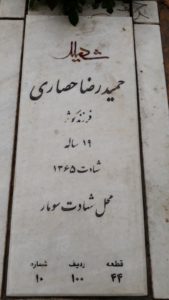 شهید
حمیدرضا حصاری
فرزند کوثر
۱۹ ساله
شهادت ۱۳۶۵
محل شهادت سومار
قطعه ردیف شماره
۴۴ ۱۰۰ ۱۰